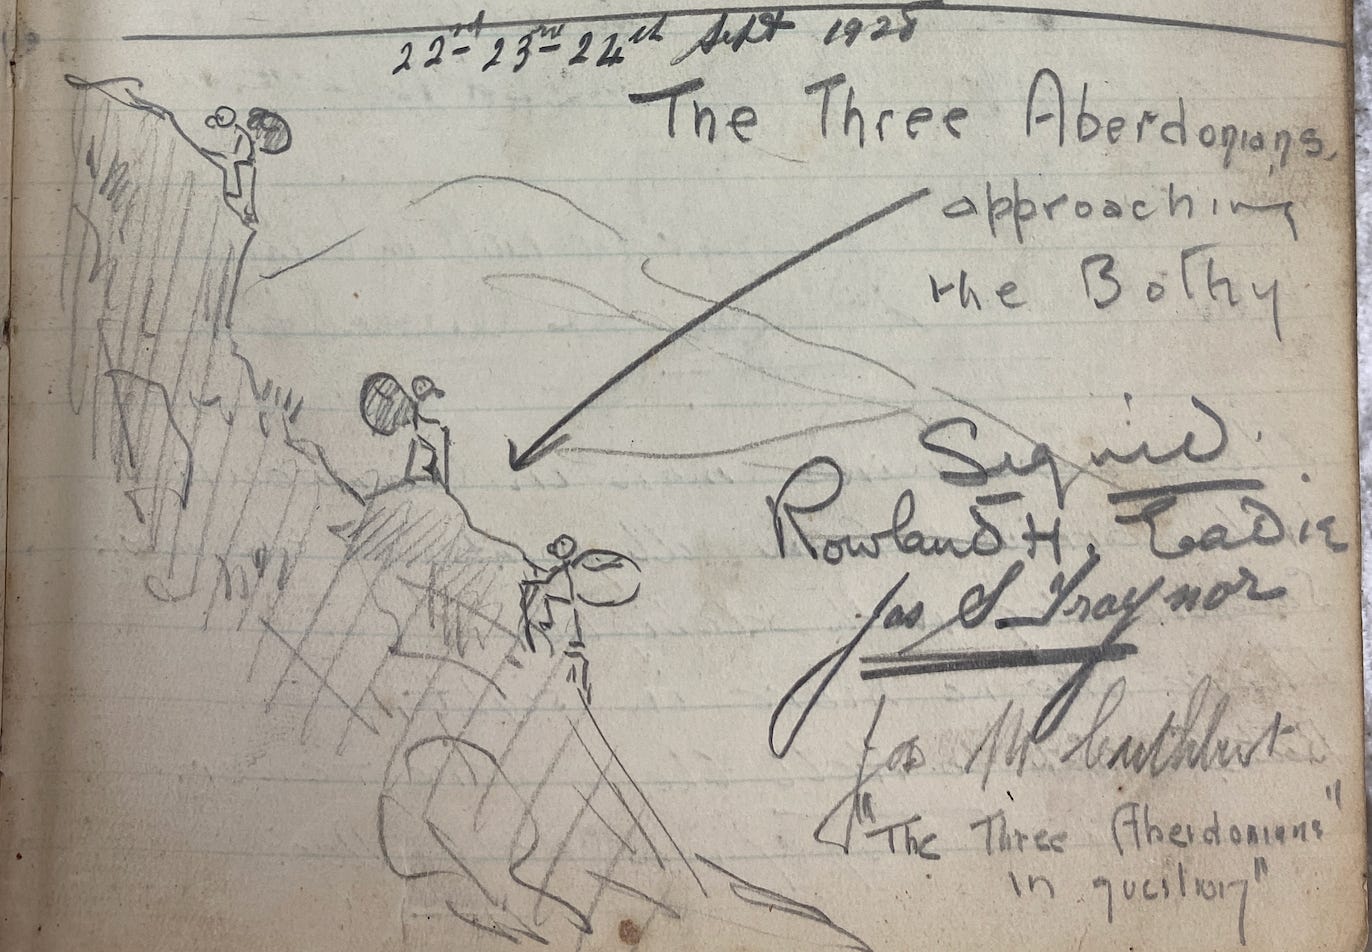 22nd 23rd 24th Sept 1928
The Three Aberdonians.
approaching
the Bothy
Signed.
Rowland H. Eadie.
Jas S. Traynor
Jas M Cuthbert
"The Three Aberdonians"
in question"